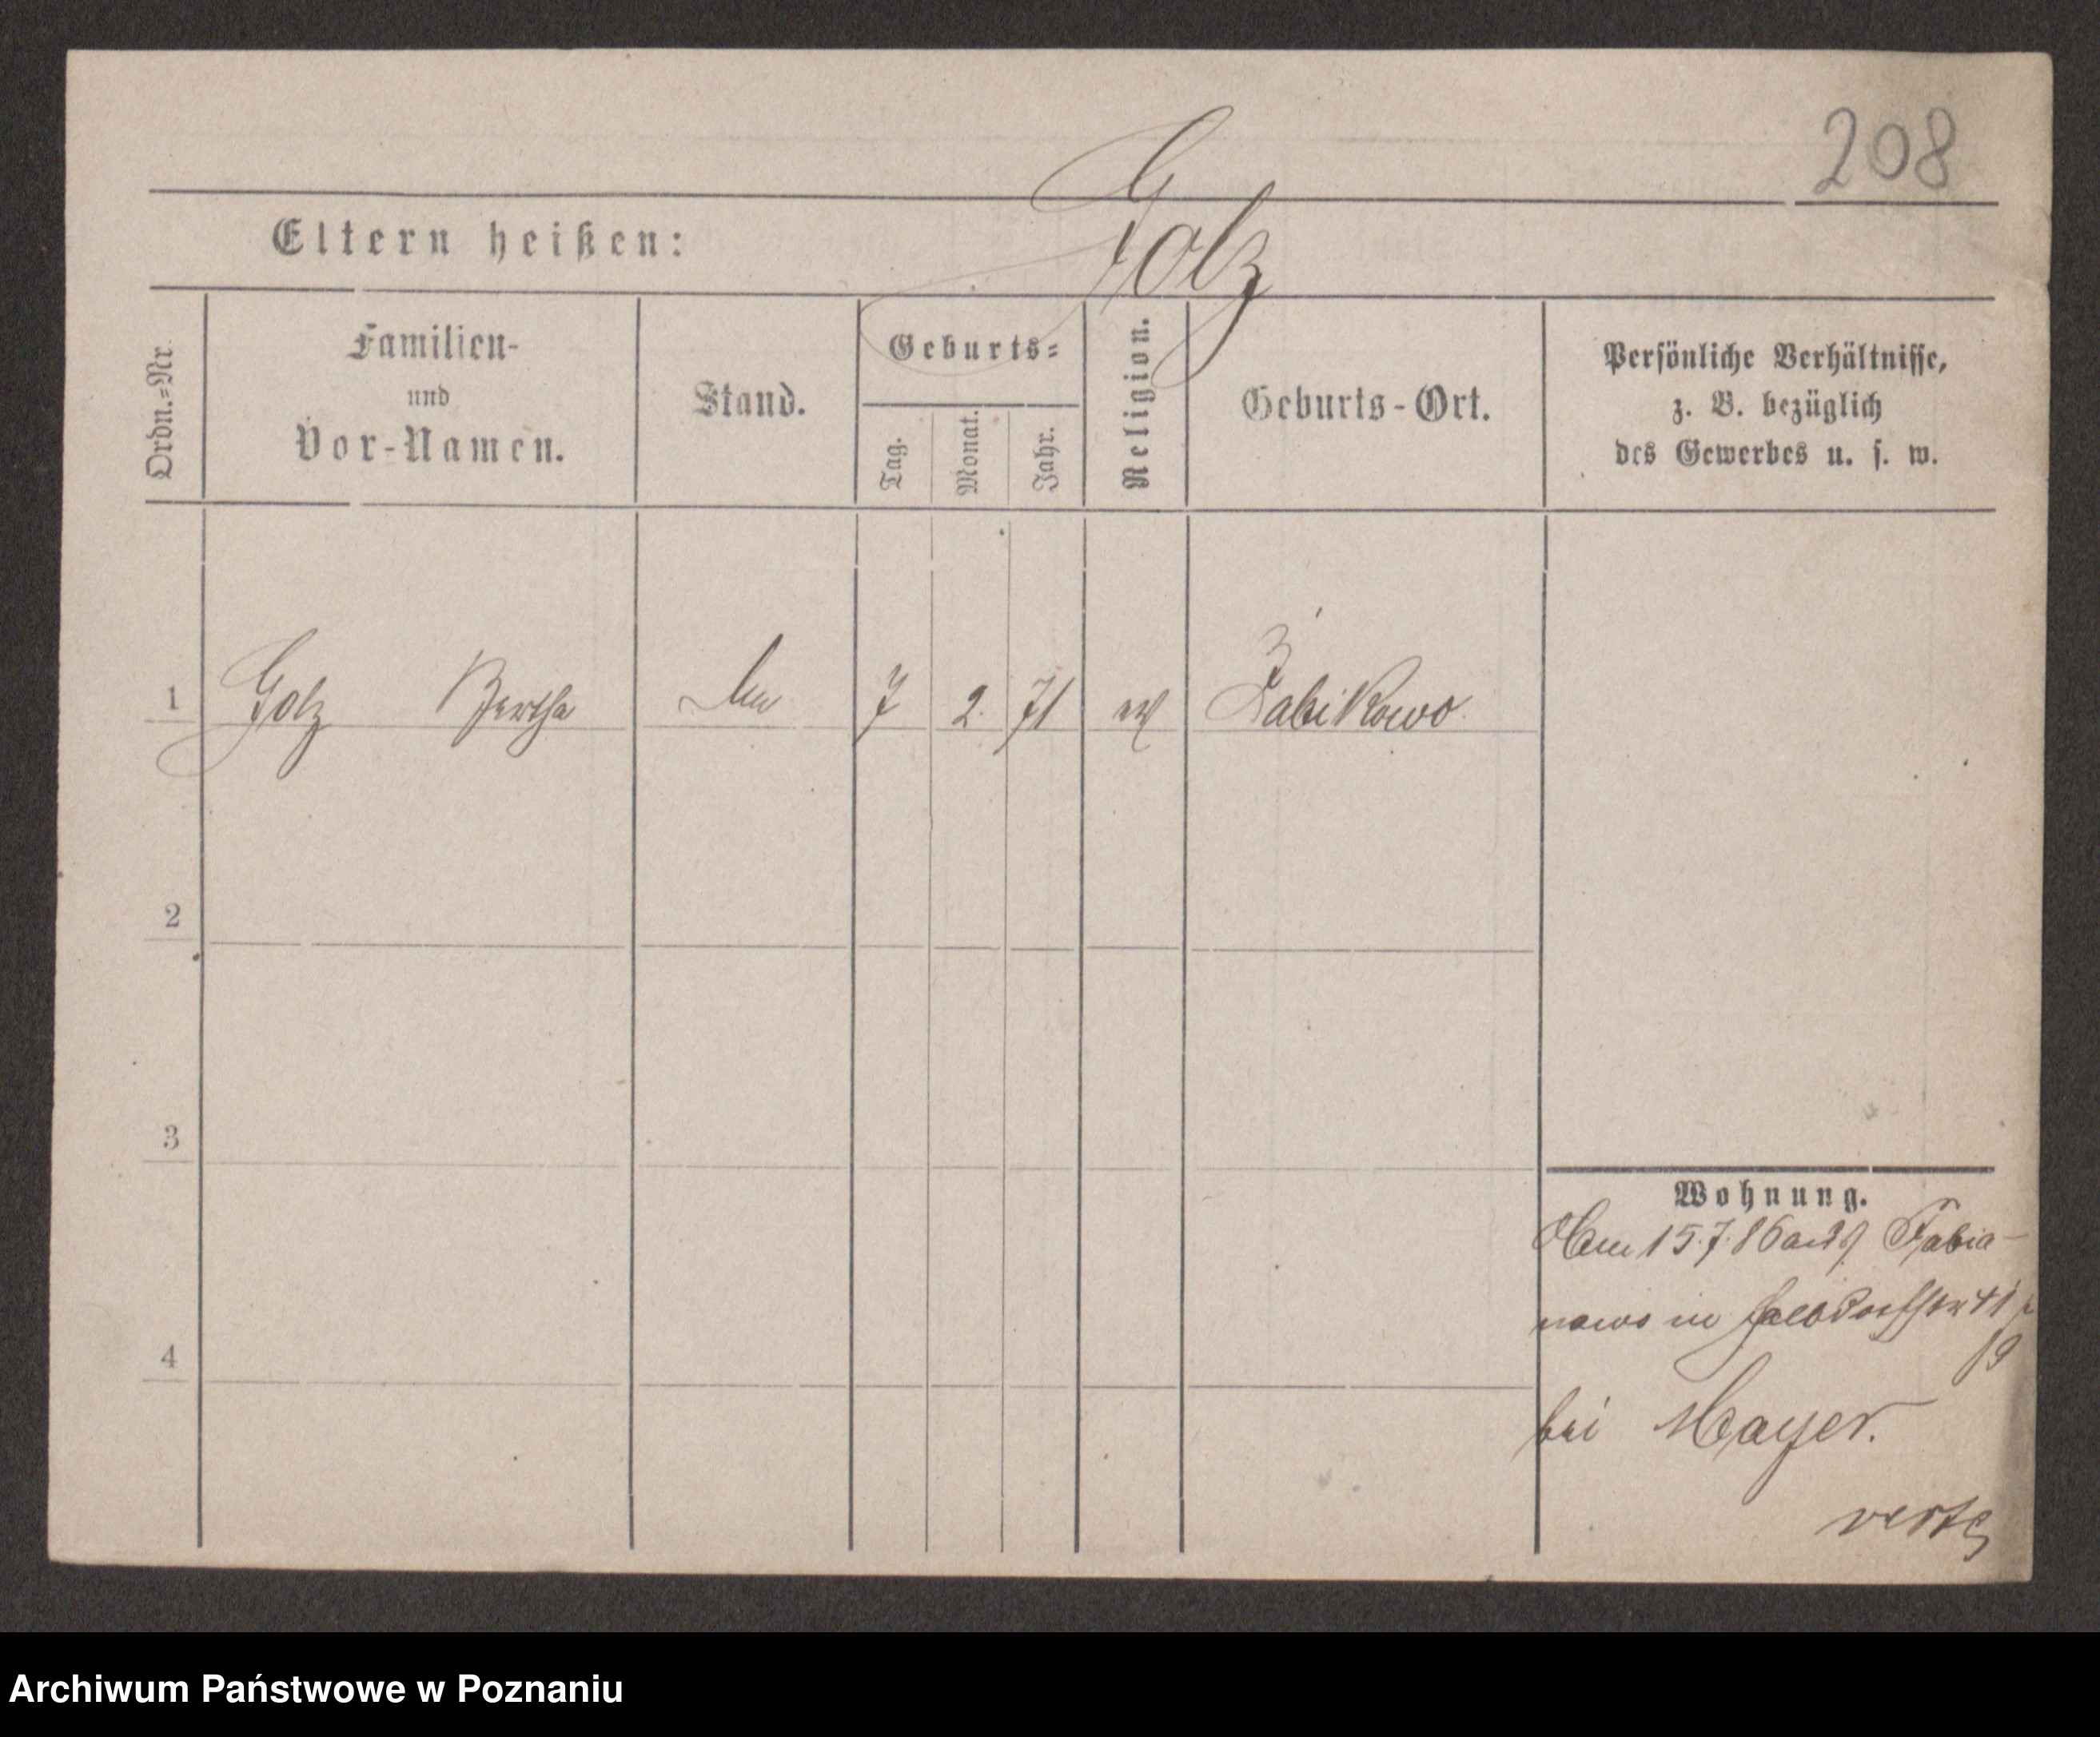 208
Golz
Eltern heißen:
Ordn.=Nr.
Familien-
und
Vor-Namen.
Stand.
Geburts=
Tag.
Monat.
Jahr.
Religion.
Geburts-Ort.
Persönliche Verhältnisse,
z. B. bezüglich
des Gewerbes u. s. w.
1 Golz Bertha 7 2. 71 ev Żabikowo
2
3
4
Wohnung.
15.7.86 Fabia-
nowo in 41
19
bei Mayer.
verte
Archiwum Państwowe w Poznaniu